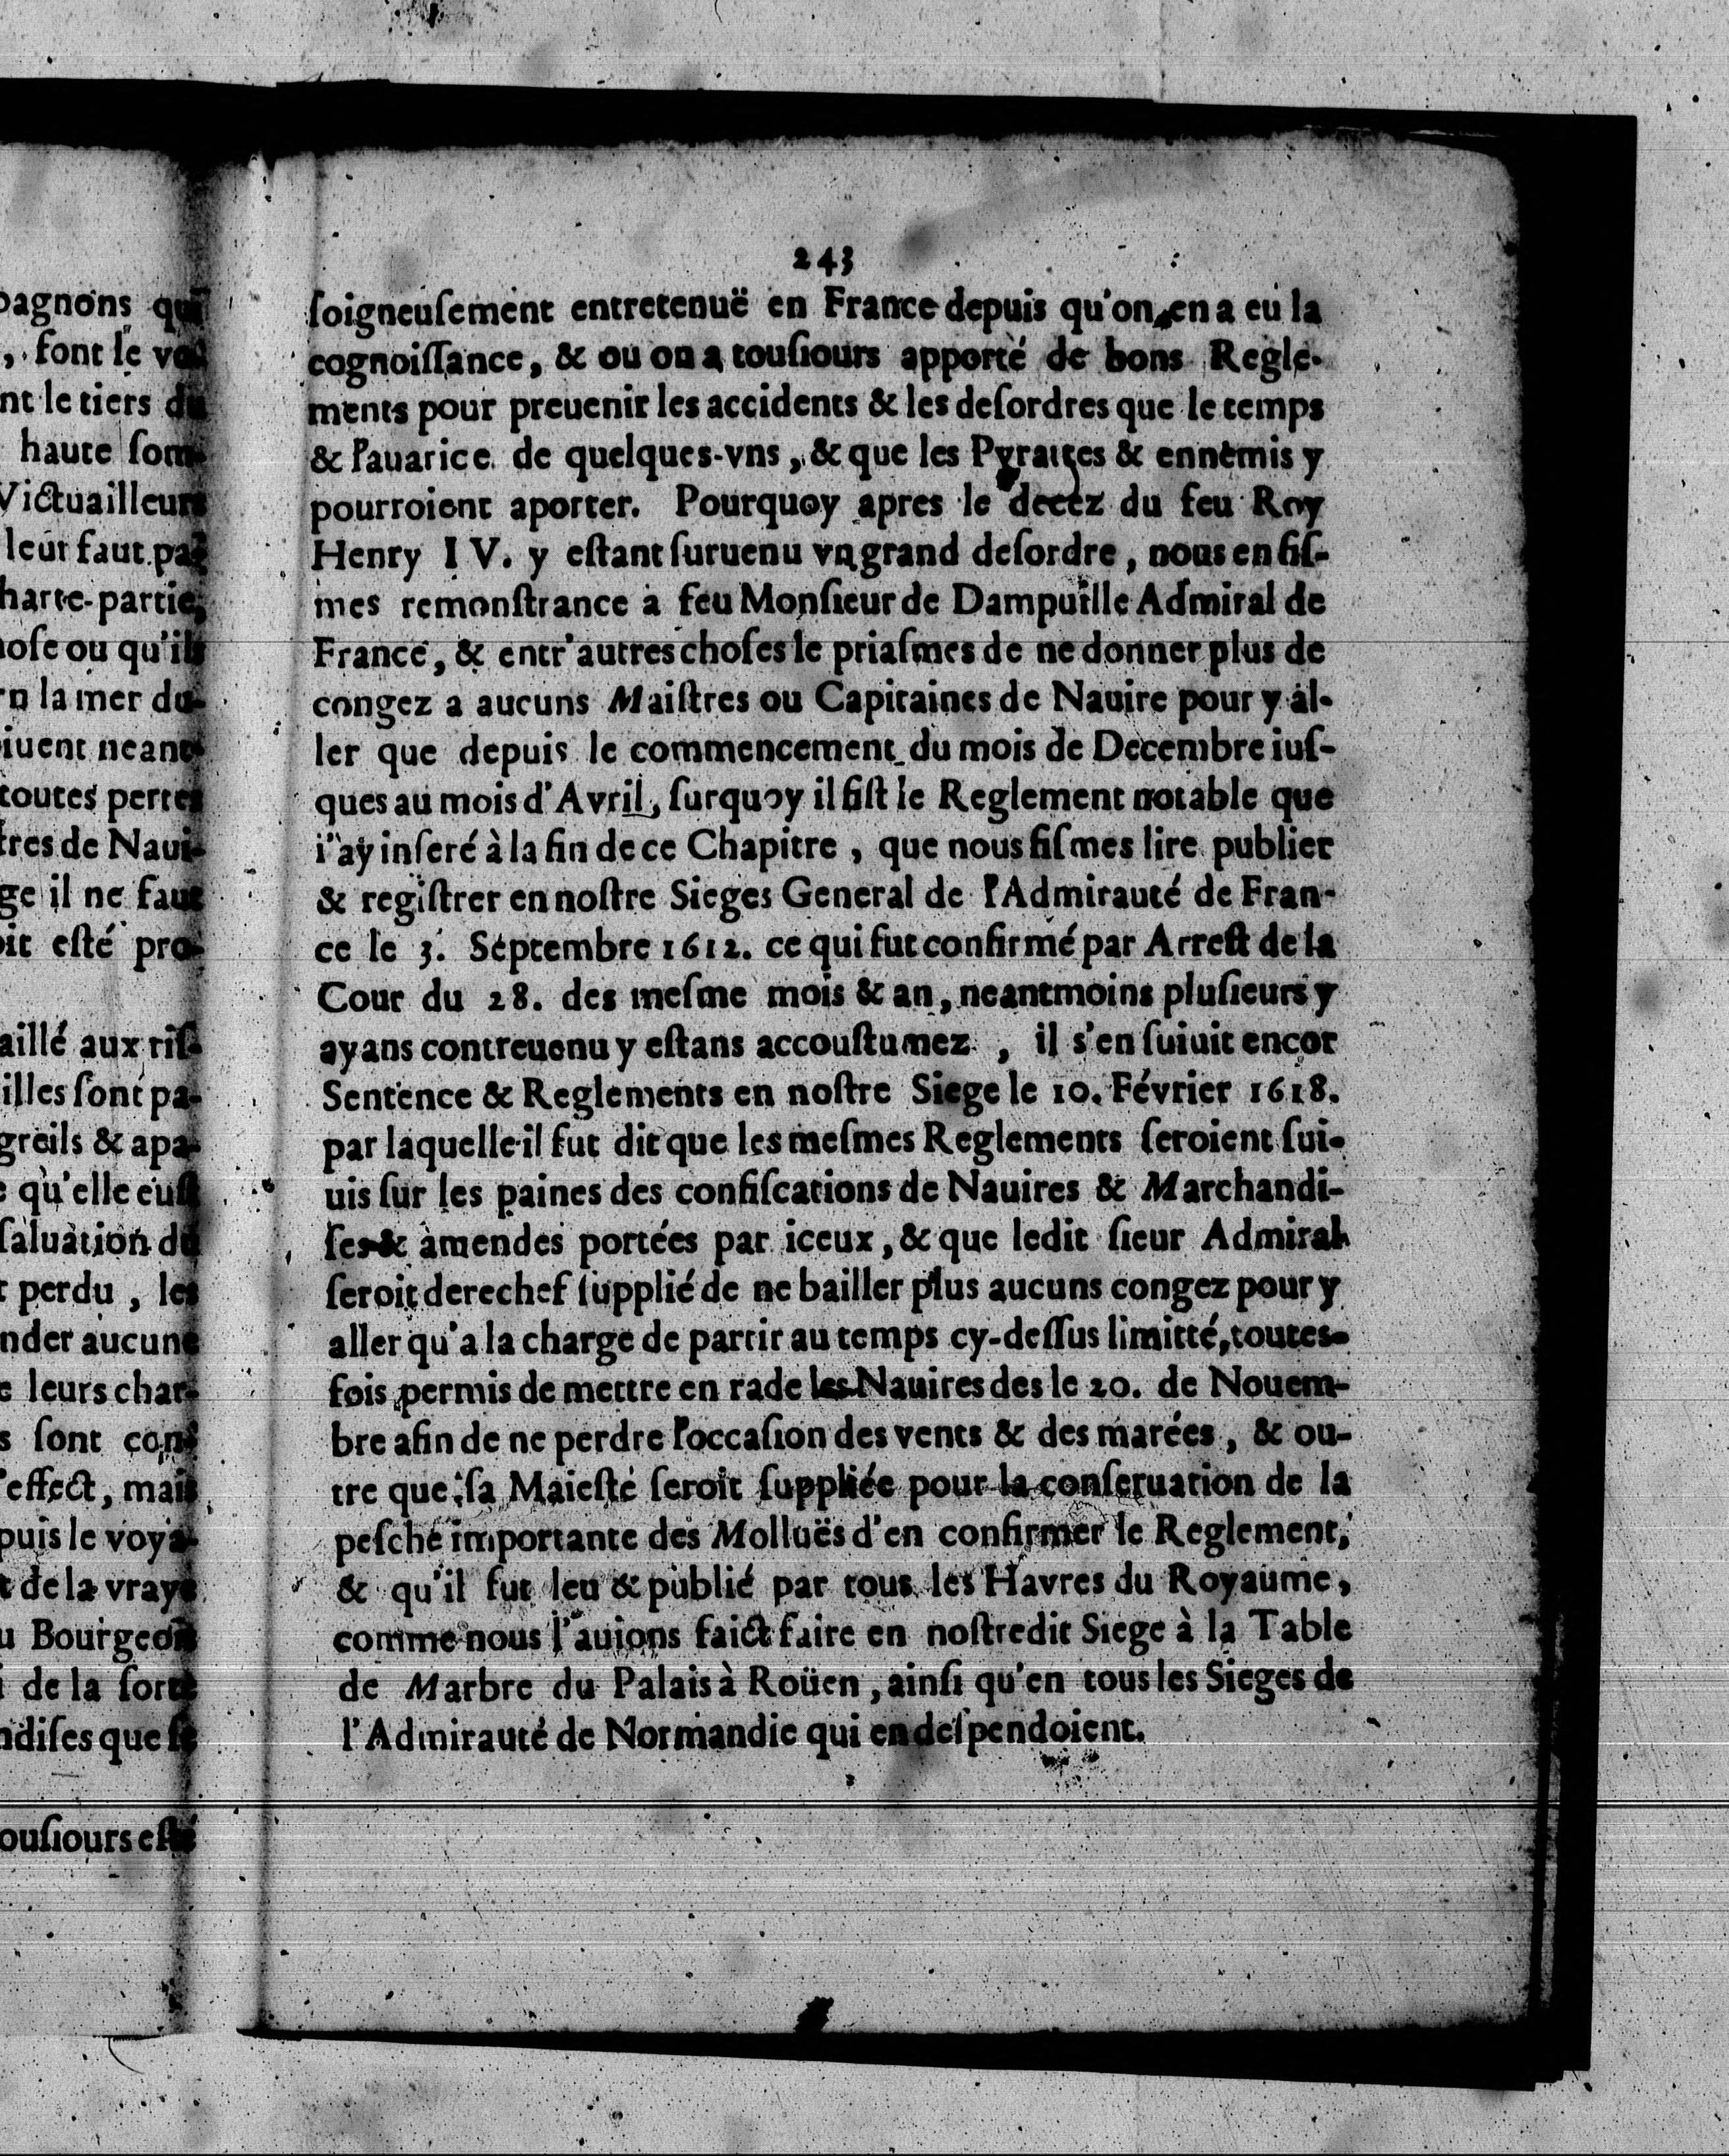 pagnons qui
, font le vo
nt le tiers du
haute som-
Victuailleurs
leur faut pa
harte-partie,
hose ou qu'ils
n la mer du-
iuent neant-
toutes pertes
tres de Naui-
ge il ne faut
oit esté pro-
aillé aux ris-
illes sont pa-
greils & apa-
e qu'elle eust
saluation du
t perdu, les
nder aucune
e leurs char-
s sont
effect, mais
puis le voya-
t de la vraye
u Bourgeois
i de la sorte
ndises que se
ousiours esté
243
soigneusement entretenuë en France depuis qu'on en a eu la
cognoissance, & ou on a tousiours apporté de bons Regle-
ments pour preuenir les accidents & les desordres que le temps
& l'auarice de quelques-vns, & que les Pyrattes & ennemis y
pourroient aporter. Pourquoy apres le decez du feu Roy
Henry IV. y estant suruenu vn grand desordre, nous en fis-
mes remonstrance a feu Monsieur de Dampuille Admiral de
France, & entr'autres choses le priasmes de ne donner plus de
congez a aucuns Maistres ou Capitaines de Nauire pour y al-
ler que depuis le commencement du mois de Decembre ius-
ques au mois d'Avril, surquoy il fist le Reglement notable que
i'ay inseré à la fin de ce Chapitre, que nous fismes lire publier
& registrer en nostre Sieges General de l'Admirauté de Fran-
ce le 3. Septembre 1612. ce qui fut confirmé par Arrest de la
Cour du 28. des mesme mois & an, neantmoins plusieurs y
ayans contreuenu y estans accoustumez, il s'en suiuit encor
Sentence & Reglements en nostre Siege le 10. Février 1618.
par laquelle il fut dit que les mesmes Reglements seroient sui-
uis sur les paines des confiscations de Nauires & Marchandi-
ses & amendes portées par iceux, & que ledit sieur Admiral
seroit derechef supplié de ne bailler plus aucuns congez pour y
aller qu'a la charge de partir au temps cy-dessus limitté, toutes-
fois permis de mettre en rade les Nauires des le 20. de Nouem-
bre afin de ne perdre l'occasion des vents & des marées, & ou-
tre que sa Maiesté seroit suppliée pour la conseruation de la
pesche importante des Molluës d'en confirmer le Reglement,
& qu'il fut leu & publié par tous les Havres du Royaume,
comme nous l'auions faict faire en nostredit Siege à la Table
de Marbre du Palais à Roüen, ainsi qu'en tous les Sieges de
l'Admirauté de Normandie qui en despendoient.